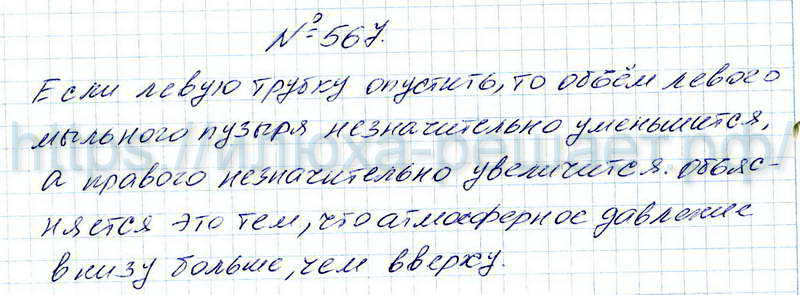 № 567.
Если левую трубку опустить, то объём левого
мыльного пузыря незначительно уменьшится,
а правого незначительно увеличится. Объяс-
няется это тем, что атмосферное давление
внизу больше, чем вверху.